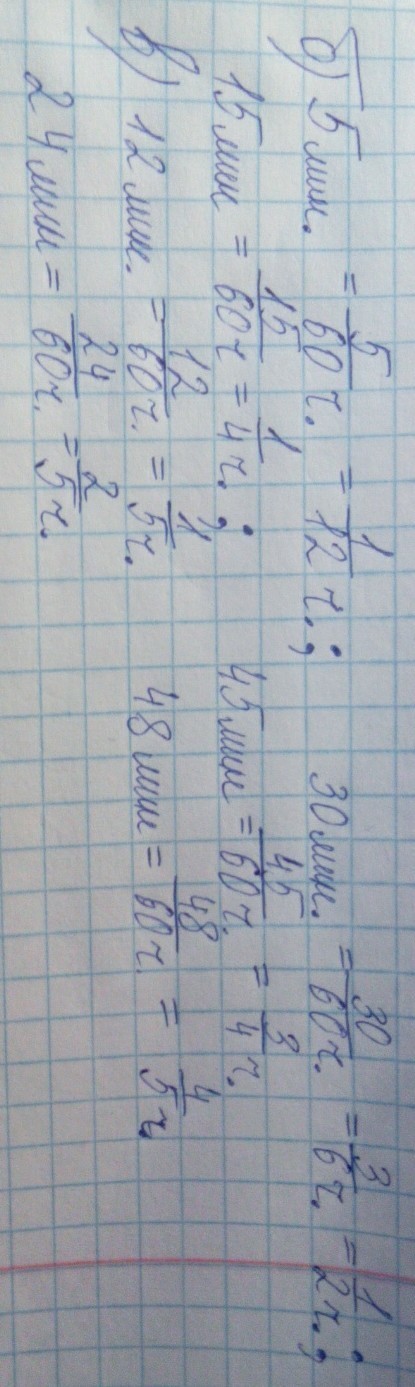 б) 5 мин. = 5/60 ч. = 1/12 ч.; 30 мин. = 30/60 ч. = 3/6 ч. = 1/2 ч.;
15 мин = 15/60 ч = 1/4 ч.; 45 мин = 45/60 ч. = 3/4 ч.
в) 12 мин. = 12/60 ч. = 1/5 ч. 48 мин = 48/60 ч. = 4/5 ч.
24 мин = 24/60 ч. = 2/5 ч.